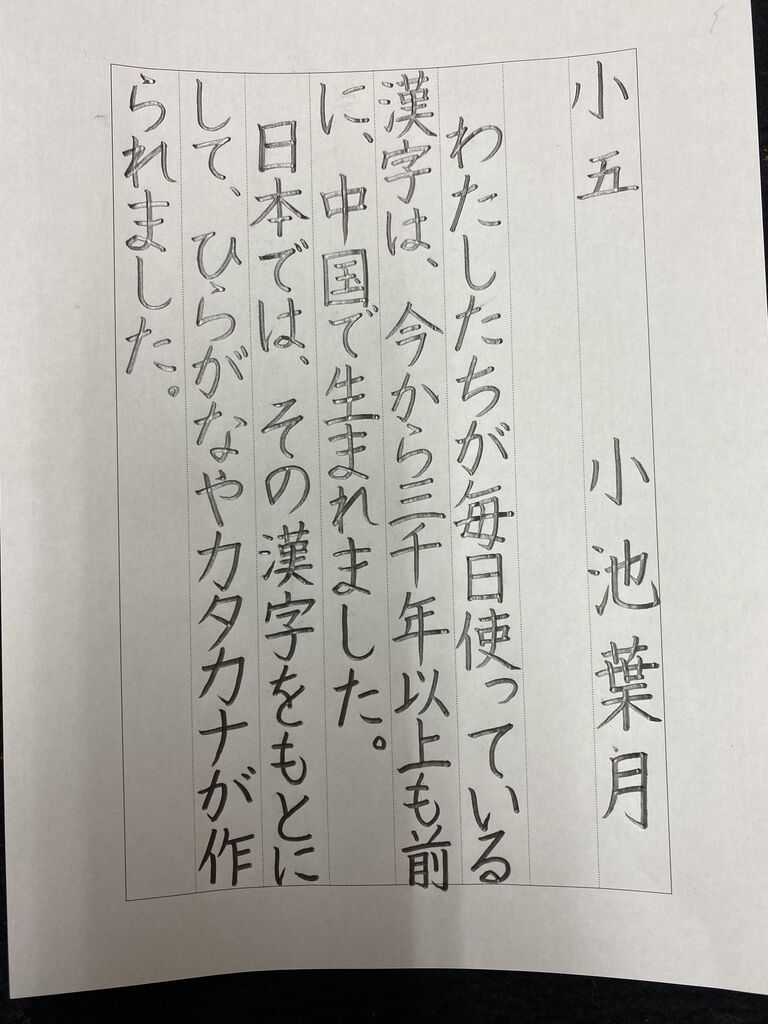 小五 小池葉月
わたしたちが毎日使っている
漢字は、今から三千年以上も前
に、中国で生まれました。
日本では、その漢字をもとに
して、ひらがなやカタカナが作
られました。